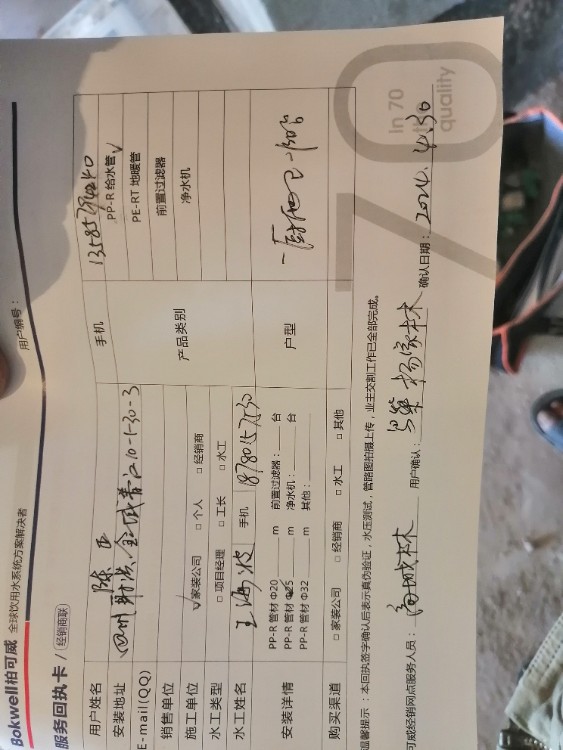 Bokwell柏可威 全球饮用水系统方案解决者 用户编号：
服务回执卡 / 经销商联
用户姓名 陈亚 手机
安装地址 四川射洪 10-1-30-3
E-mail(QQ) 产品类别 PP-R 给水管 √
销售单位 PE-RT 地暖管
施工单位 √家装公司 □ 个人 □ 经销商 前置过滤器
水工类型 □ 项目经理 □ 工长 □ 水工 净水机
水工姓名 王海波 手机 18780157530
安装详情 PP-R 管材 Φ20 m 前置过滤器： 台 户型 一厨
PP-R 管材 Φ25 m 净水机： 台
PP-R 管材 Φ32 m 其他：
购买渠道 □ 家装公司 □ 经销商 □ 水工 □ 其他
温馨提示：本回执签字确认后表示真伪验证，水压测试，管路图拍摄上传，业主交割工作已全部完成。
可威经销网点服务人员： 用户确认： 确认日期：2024.4.30
In 70
quality
70